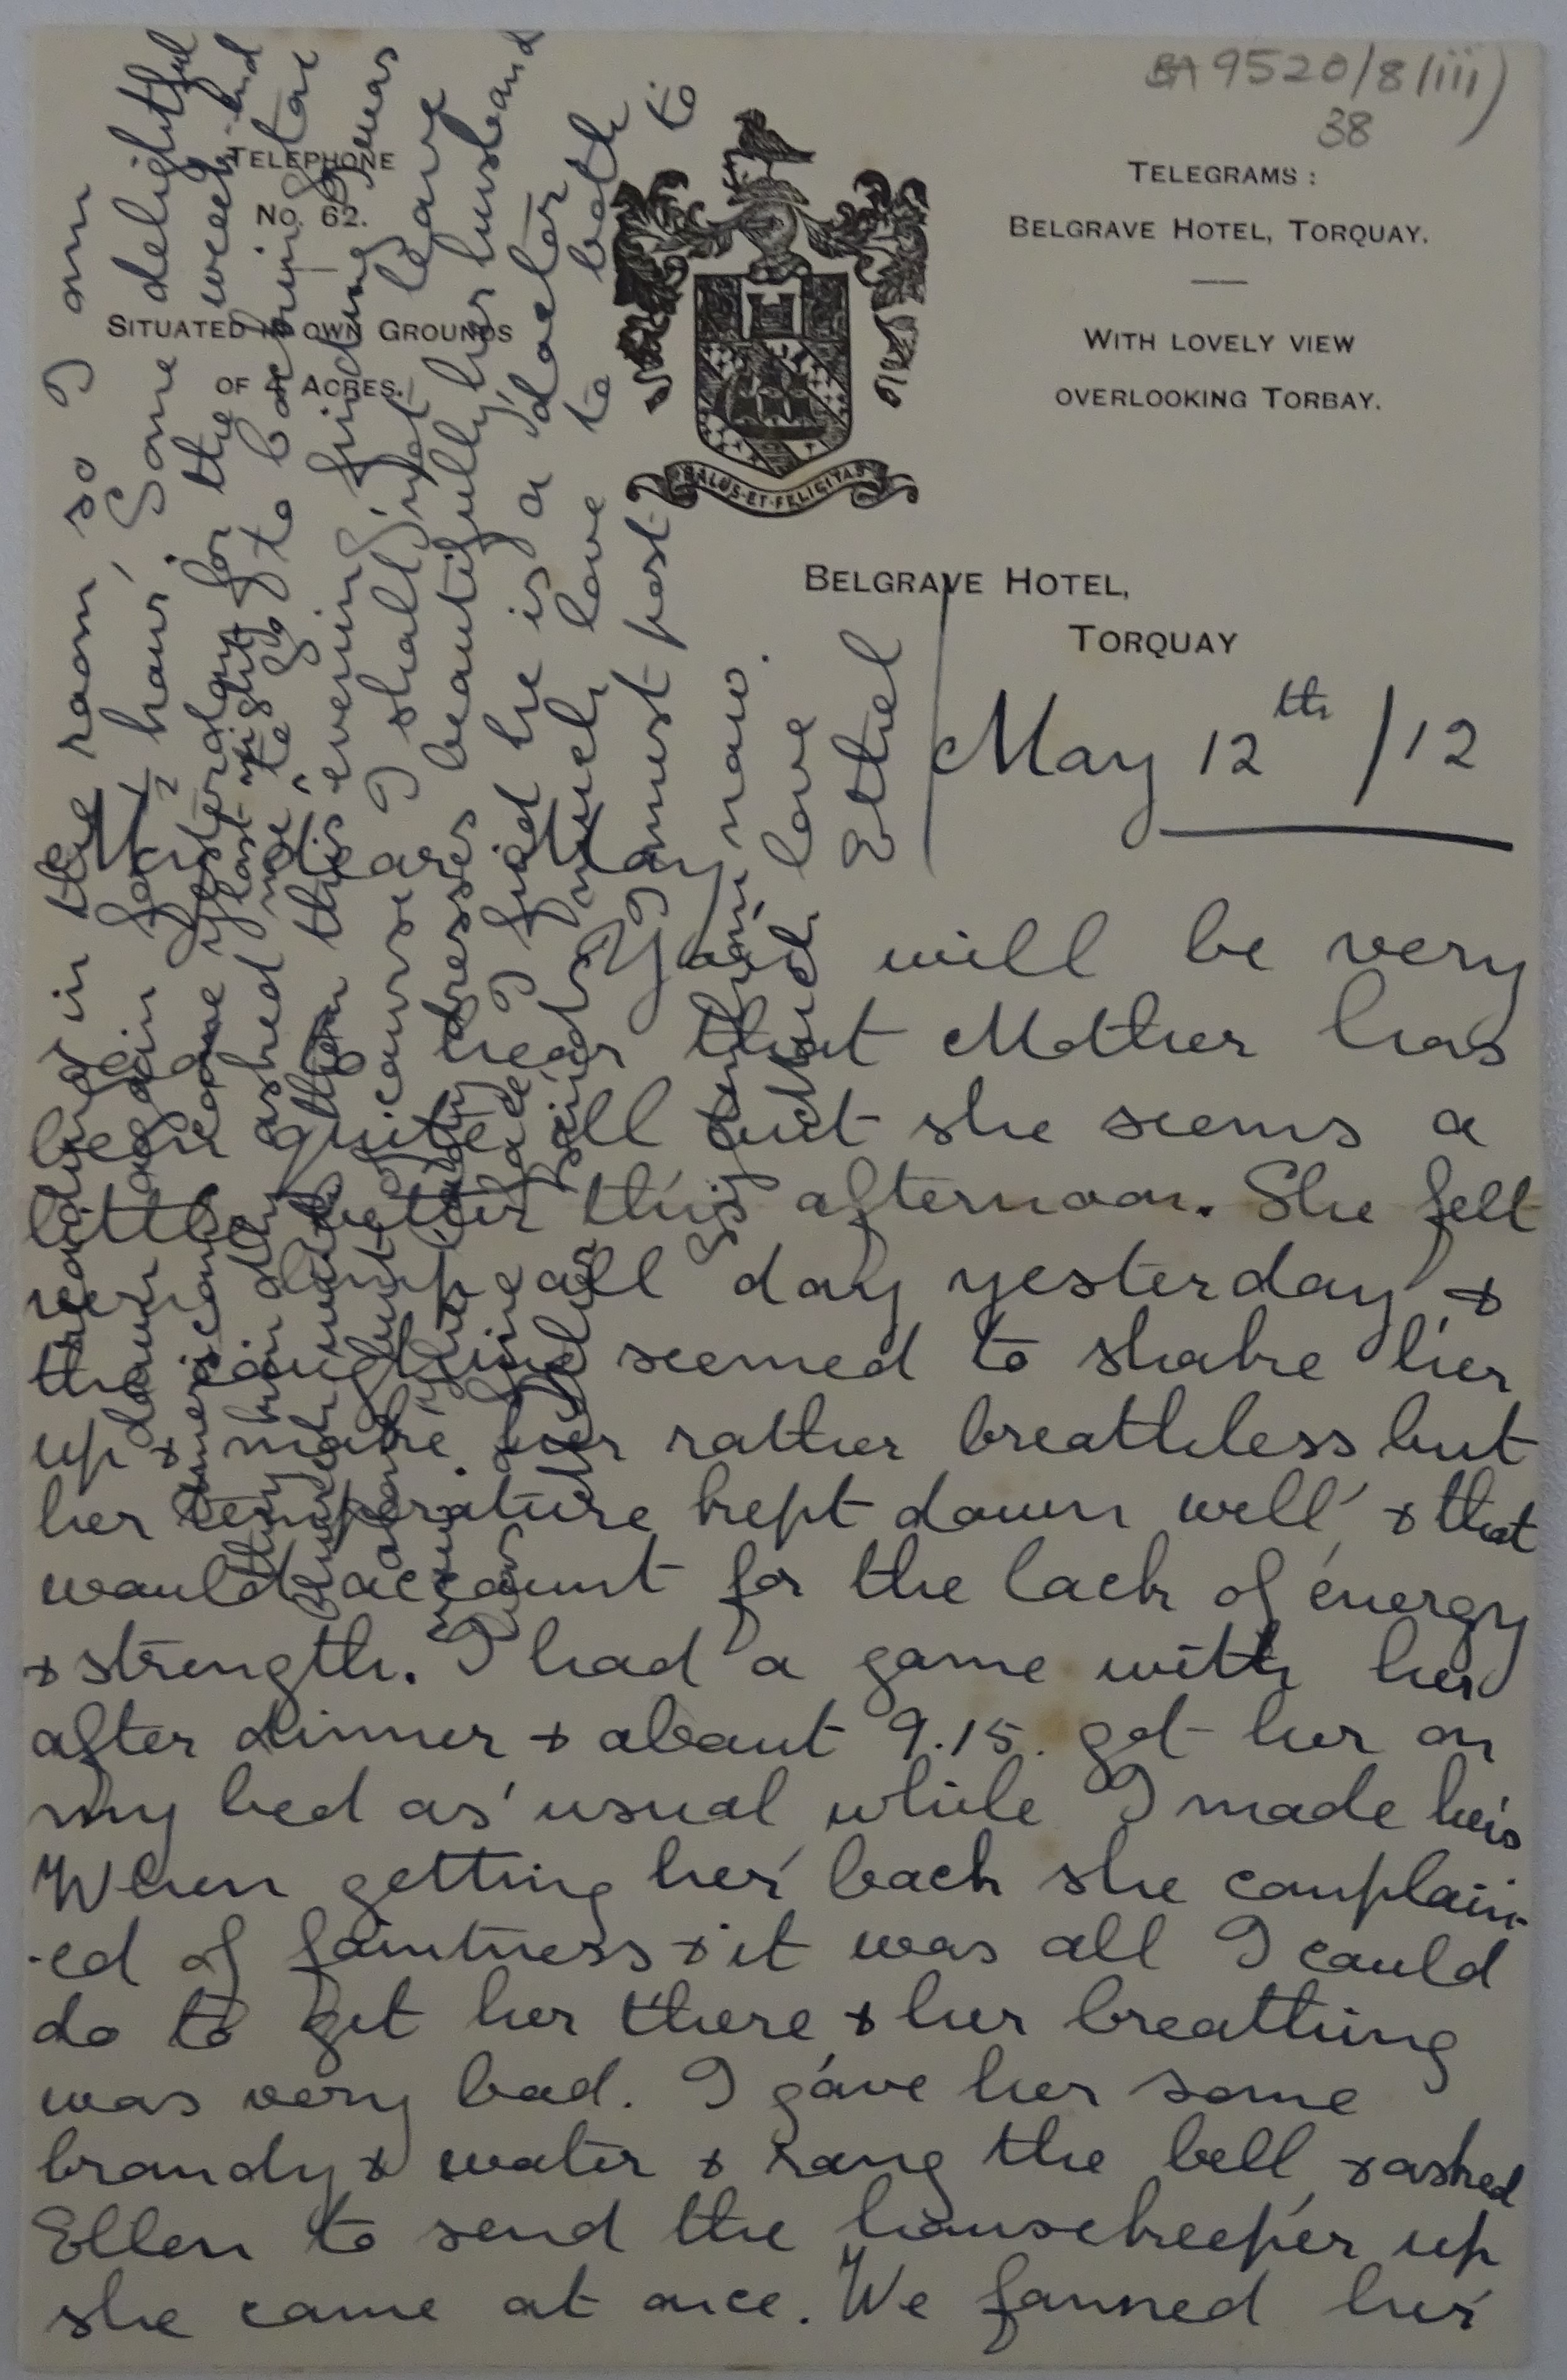 BA 9520/8(iii)
38
TELEPHONE
No. 62.
SITUATED IN OWN GROUNDS
OF 4 ACRES.
SALUS·ET·FELICITAS
TELEGRAMS:
BELGRAVE HOTEL, TORQUAY.
WITH LOVELY VIEW
OVERLOOKING TORBAY.
BELGRAVE HOTEL,
TORQUAY
May 12th /12
My dear May
You will be very
to hear that Mother has
been quite ill but she seems a
little better this afternoon. She felt
very limp all day yesterday &
the coughing seemed to shake her
up & make her rather breathless but
her temperature kept down well & that
would account for the lack of energy
& strength. I had a game with her
after dinner & about 9.15. got her on
my bed as usual while I made hers
When getting her back she complain-
-ed of faintness & it was all I could
do to get her there & her breathing
was very bad. I gave her some
brandy & water & rang the bell & asked
Ellen to send the housekeeper up
she came at once. We fanned her
is reading in the room, so I am
down again for ½ hour. Some delightful
Americans came yesterday for the week-end
they asked me to go to
Church this evening
of course I shall not leave
dresses beautifully, her husband
face I find he is a doctor
much love to both
I must post to
now.
Much love
Ethel